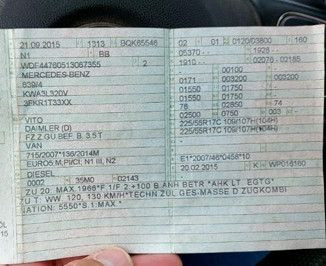 21.09.2015 1313 BQK65546
N1 BB
WDF44760513067355 2
MERCEDES-BENZ
639/4
KWA3L320V
3FKR1T33XX
VITO
DAIMLER (D)
FZ.Z.GÜ.BEF. B. 3.5T
VAN
715/2007*136/2014M
EURO5 M,P,I/CI, N1 III, N2
DIESEL
0002 35M0 02143
ZU 20: MAX.1966*F.1/F.2:+100 B.ANH BETR.*AHK LT. EGTG*
ZU T: WW. 120, 130 KM/H*TECHN ZUL.GES-MASSE D ZUGKOMBI
NATION: 5550*S.1:MAX.*
02 01 0120/03800 160
05370 - 1928 -
1910 - 02076 - 02185
- 00100
0171 003200 003200
01550 01750 -
01550 01750 -
78 02850 74
02500 0750 003
225/55R17C 109/107H(104H)
225/55R17C 109/107H(104H)
E1*2007/46*0458*10
20.02.2015 K WP016160